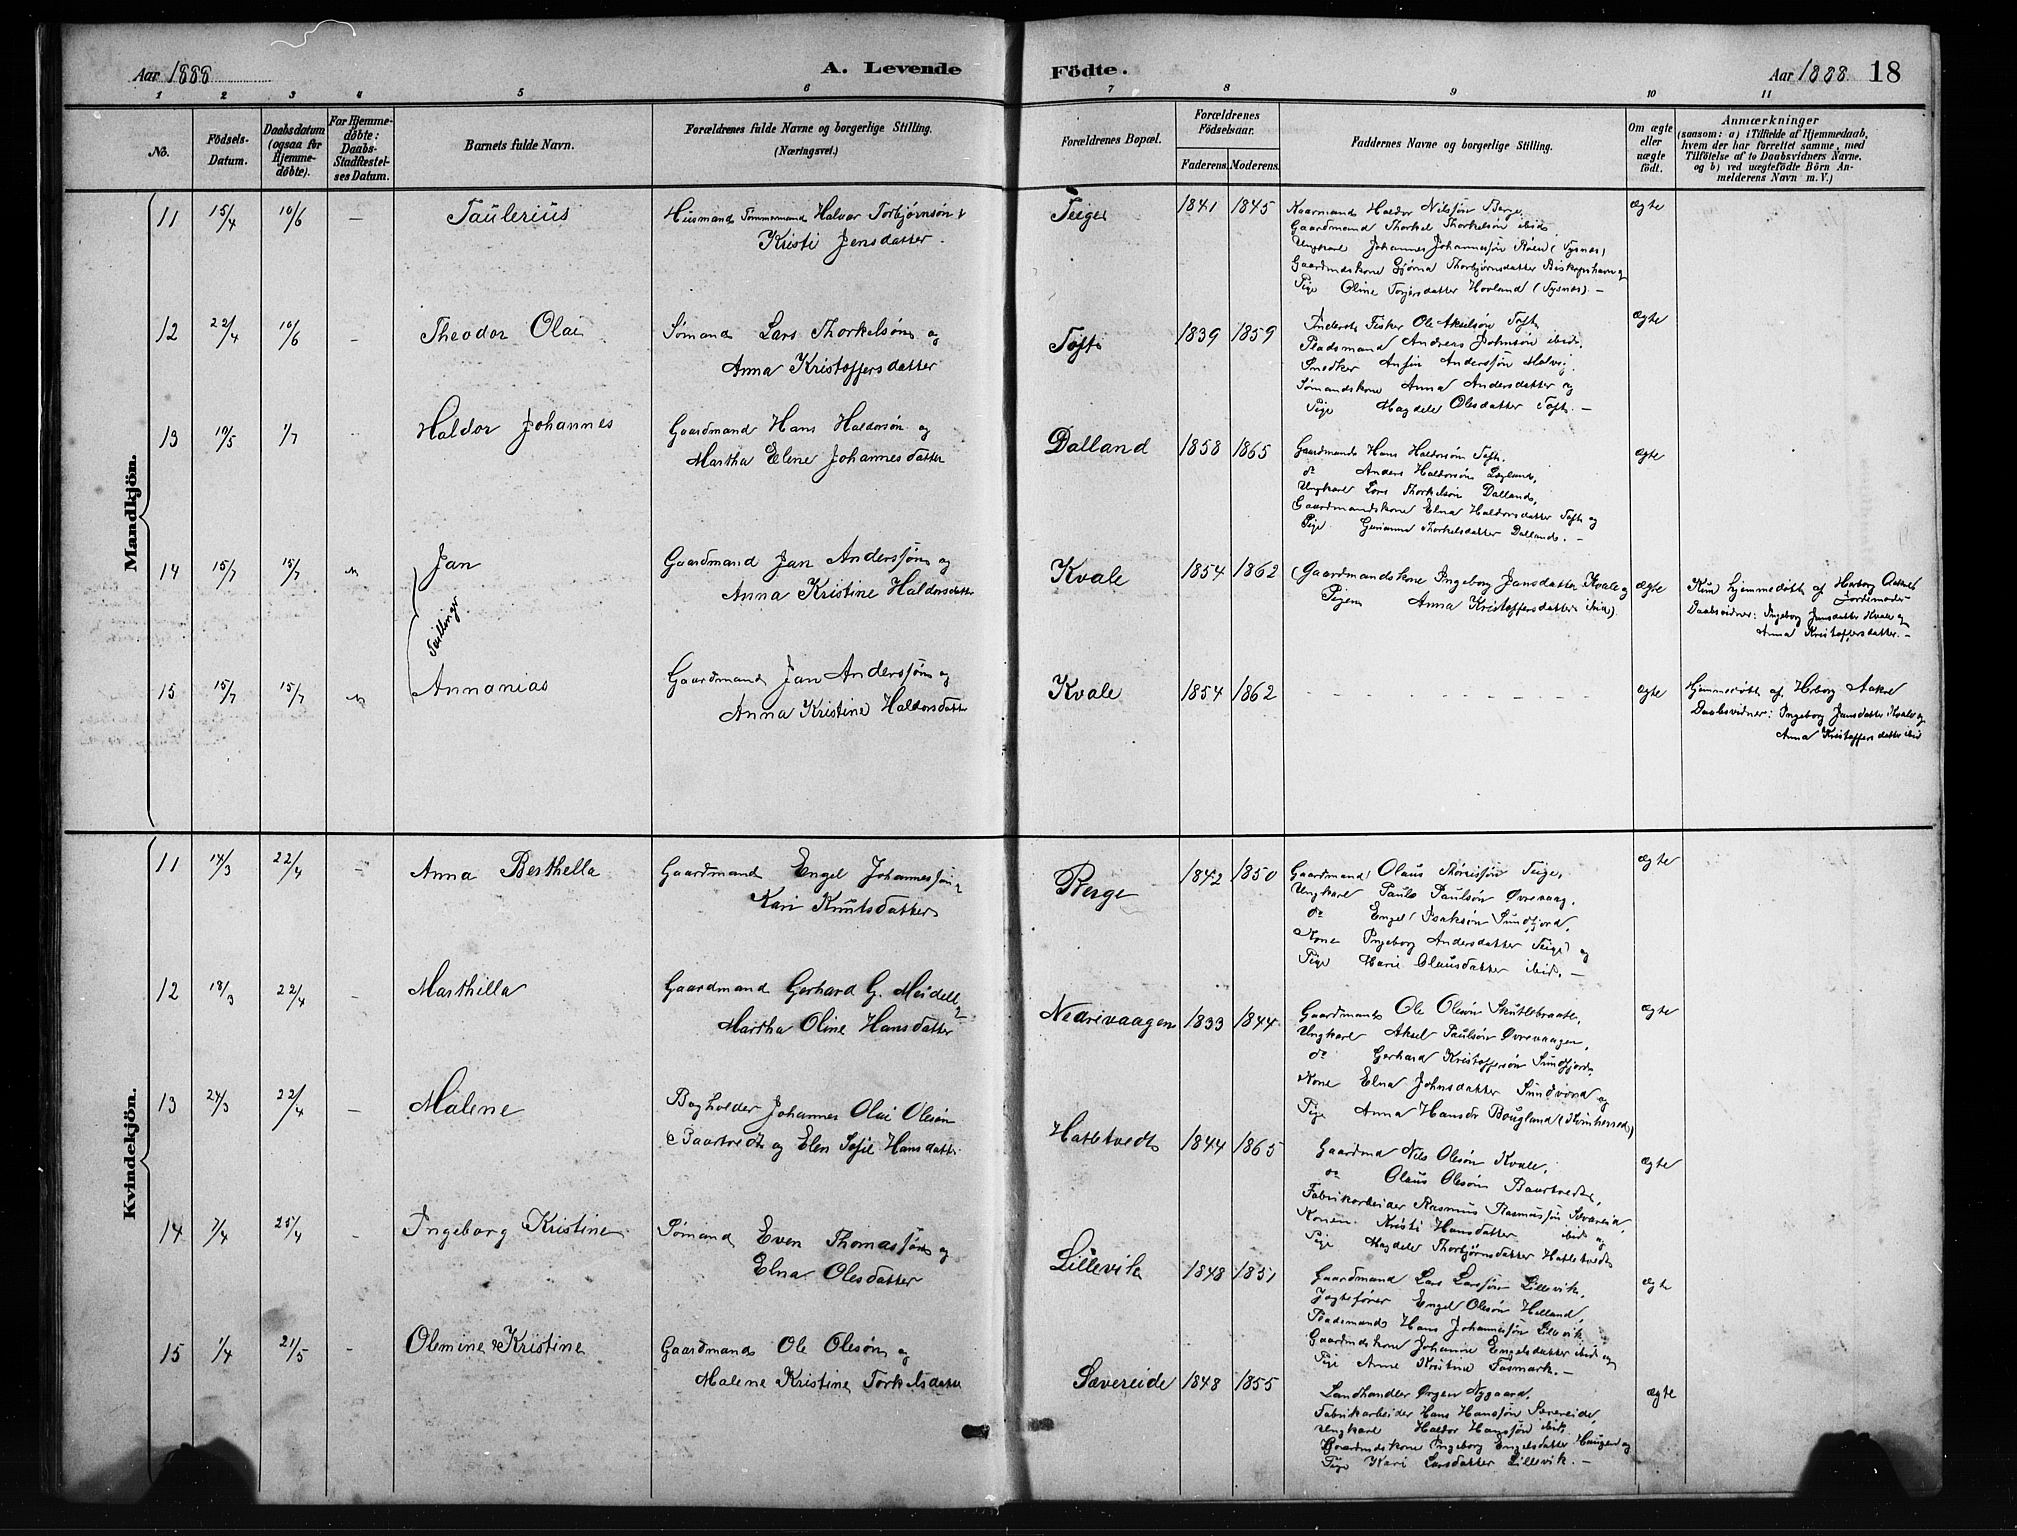 Aar 1888
A. Levende
Födte.
Aar 1888. 18
1 2 3 4 5 6 7 8 9 10 11
No.
Födsels-
Datum.
Daabsdatum
(ogsaa for
Hjemme-
döbte).
For Hjemme-
döbte:
Daabs-
Stadfæstel-
ses Datum.
Barnets fulde Navn.
Forældrenes fulde Navne og borgerlige Stilling.
(Næringsvei.)
Forældrenes Bopæl.
Forældrenes
Födselsaar.
Faderens. Moderens.
Faddernes Navne og borgerlige Stilling.
Om ægte
eller
uægte
födt.
Anmærkninger
(saasom: a) i Tilfælde af Hjemmedaab,
hvem der har forrettet samme, med
Tilföielse af to Daabsvidners Navne,
og b) ved uægtefödte Börn An-
melderens Navn m. V.)
Mandkjön.
11 15/4 10/6 — Taulerius
Husmand Tømmermand Halvor Torbjørnsøn &
Kristi Jensdatter.
Teige 1841 1845
Kaarmand Haldor Nilssøn Berge,
Gaardmand Thorkel Thorkelsøn ibid.
Ungkarl Johannes Johannessøn Røen (Tysnæs)
Gaardmdskone Gjørna Thorbjørnsdatter Biskopshavn og
Pige Oline Torjersdatter Hovland (Tysnæs). —
ægte
12 22/4 10/6 — Theodor Olai
Sømand Lars Thorkelsøn og
Anna Kristoffersdatter
Toft 1839 1859
Inderst Fisker Ole Akselsøn Toft
Pladsmand Andreas Johnsøn ibid.
Smedker Anfin Anderssøn Malvig.
Sømandskone Anna Andersdatter og
Pige Magdele Olesdatter Toft. —
ægte
13 10/5 1/7 Haldor Johannes
Gaardmand Hans Haldorsøn og
Martha Elene Johannesdatter
Dalland 1858 1865
Gaardmand Hans Haldorsøn Toft.
do Anders Haldorsøn
Ungkarl Lars Thorkelsøn Dalland,
Gaardmandskone Elna Haldorsdatter Toft og
Pige Gurianna Thorkelsdatter Dalland. —
ægte
14 15/7 15/7 Jan
Tvillinger
Gaardmand Jan Anderssøn og
Anna Kristine Haldorsdatter
Kvale 1854 1862
(Gaardmandskone Ingeborg Jansdatter Kvale og
Pigen Anna Kristoffersdatter ibid).
ægte
Kun hjemmedøbt af Herborg Aakre
Jordemoder
Daabsvidner: Ingeborg Jansdatter Kvale og
Anna Kristoffersdatter. —
15 15/7 15/7 Annanias
Gaardmand Jan Anderssøn og
Anna Kristine Haldorsdatter
Kvale 1854 1862
- - - - - - - - -
ægte
Hjemmedøbt af Herborg Aakre
Daabsvidner: Ingeborg Jansdatter Kvale og
Anna Kristoffersdatter ibid
Kvindekjön.
11 14/3 22/4 — Anna Berthella
Gaardmand Engel Johannessøn &
Kari Knutsdatter
Berge 1842 1850
Gaardmand Olaus Thorissøn Teige,
Ungkarl Paul Paulsøn Øvrevaag,
do Engel Isaksøn Sundfjord,
Kone Ingeborg Andersdatter Teige og
Pige Marie Olausdatter ibid. —
ægte
12 18/3 22/4 — Marthilla
Gaardmand Gerhard G. Meidell &
Martha Oline Hansdatter
Nedrevaagen 1833 1844
Gaardmand Ole Olesøn Skutlebraate,
Ungkarl Aksel Paulsøn Øvrevaagen,
do Gerhard Kristoffersøn Sundfjord
Kone Elna Johnsdatter Sundvord og
Pige Anna Hansdr Bougland (Kvinherred)
ægte
13 24/3 22/4 — Malene
Bogholder Johannes Olai Olesøn
Baartvedt og Elen Sofie Hansdatter
Hatletvedt 1844 1865
Gaardmd Nils Olesøn Kvale,
do Olaus Olesøn Baartvedt,
Fabrikarbeider Rasmus Rasmussøn Sævareid,
Konen Kristi Hansdatter ibid og
Pige Magdele Thorbjørnsdatter Hatletvedt
ægte
14 7/4 25/4 — Ingeborg Kristine
Sømand Even Thomassøn og
Elna Olesdatter
Lillevik 1848 1851
Gaardmand Lars Larssøn Lillevik,
Jagtefører Engel Olesøn Helland,
Pladsmand Hans Johannessøn Lillevik
Gaardmdskone Johanne Engelsdatter ibid og
Pige Anne Kristine Fosmark. —
ægte
15 1/4 21/5 — Olemine Kristine
Gaardmand Ole Olesøn og
Malene Kristine Torkelsdatter
Sævereide 1848 1855
Landhandler Ørgen Nygaard,
Fabrikarbeider Hans Hanssøn Sævereide,
Ungkarl Haldor Hanssøn ibid,
Gaardmdskone Ingeborg Engelsdatter Haugen og
Pige Kari Larsdatter Lillevik. —
ægte